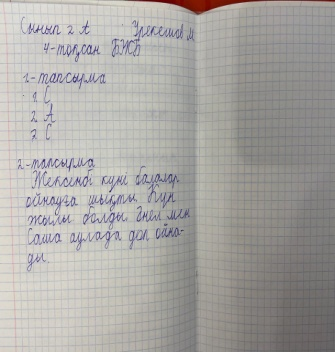 Сынып 2 А Урекешов М
4-тоқсан БЖБ
1-тапсырма
1 С
2 А
3 С
2-тапсырма
Жексенбі күні балалар
ойнауға шықты. Күн
жылы болды. Әнел мен
Саша аулада доп ойна-
ды.